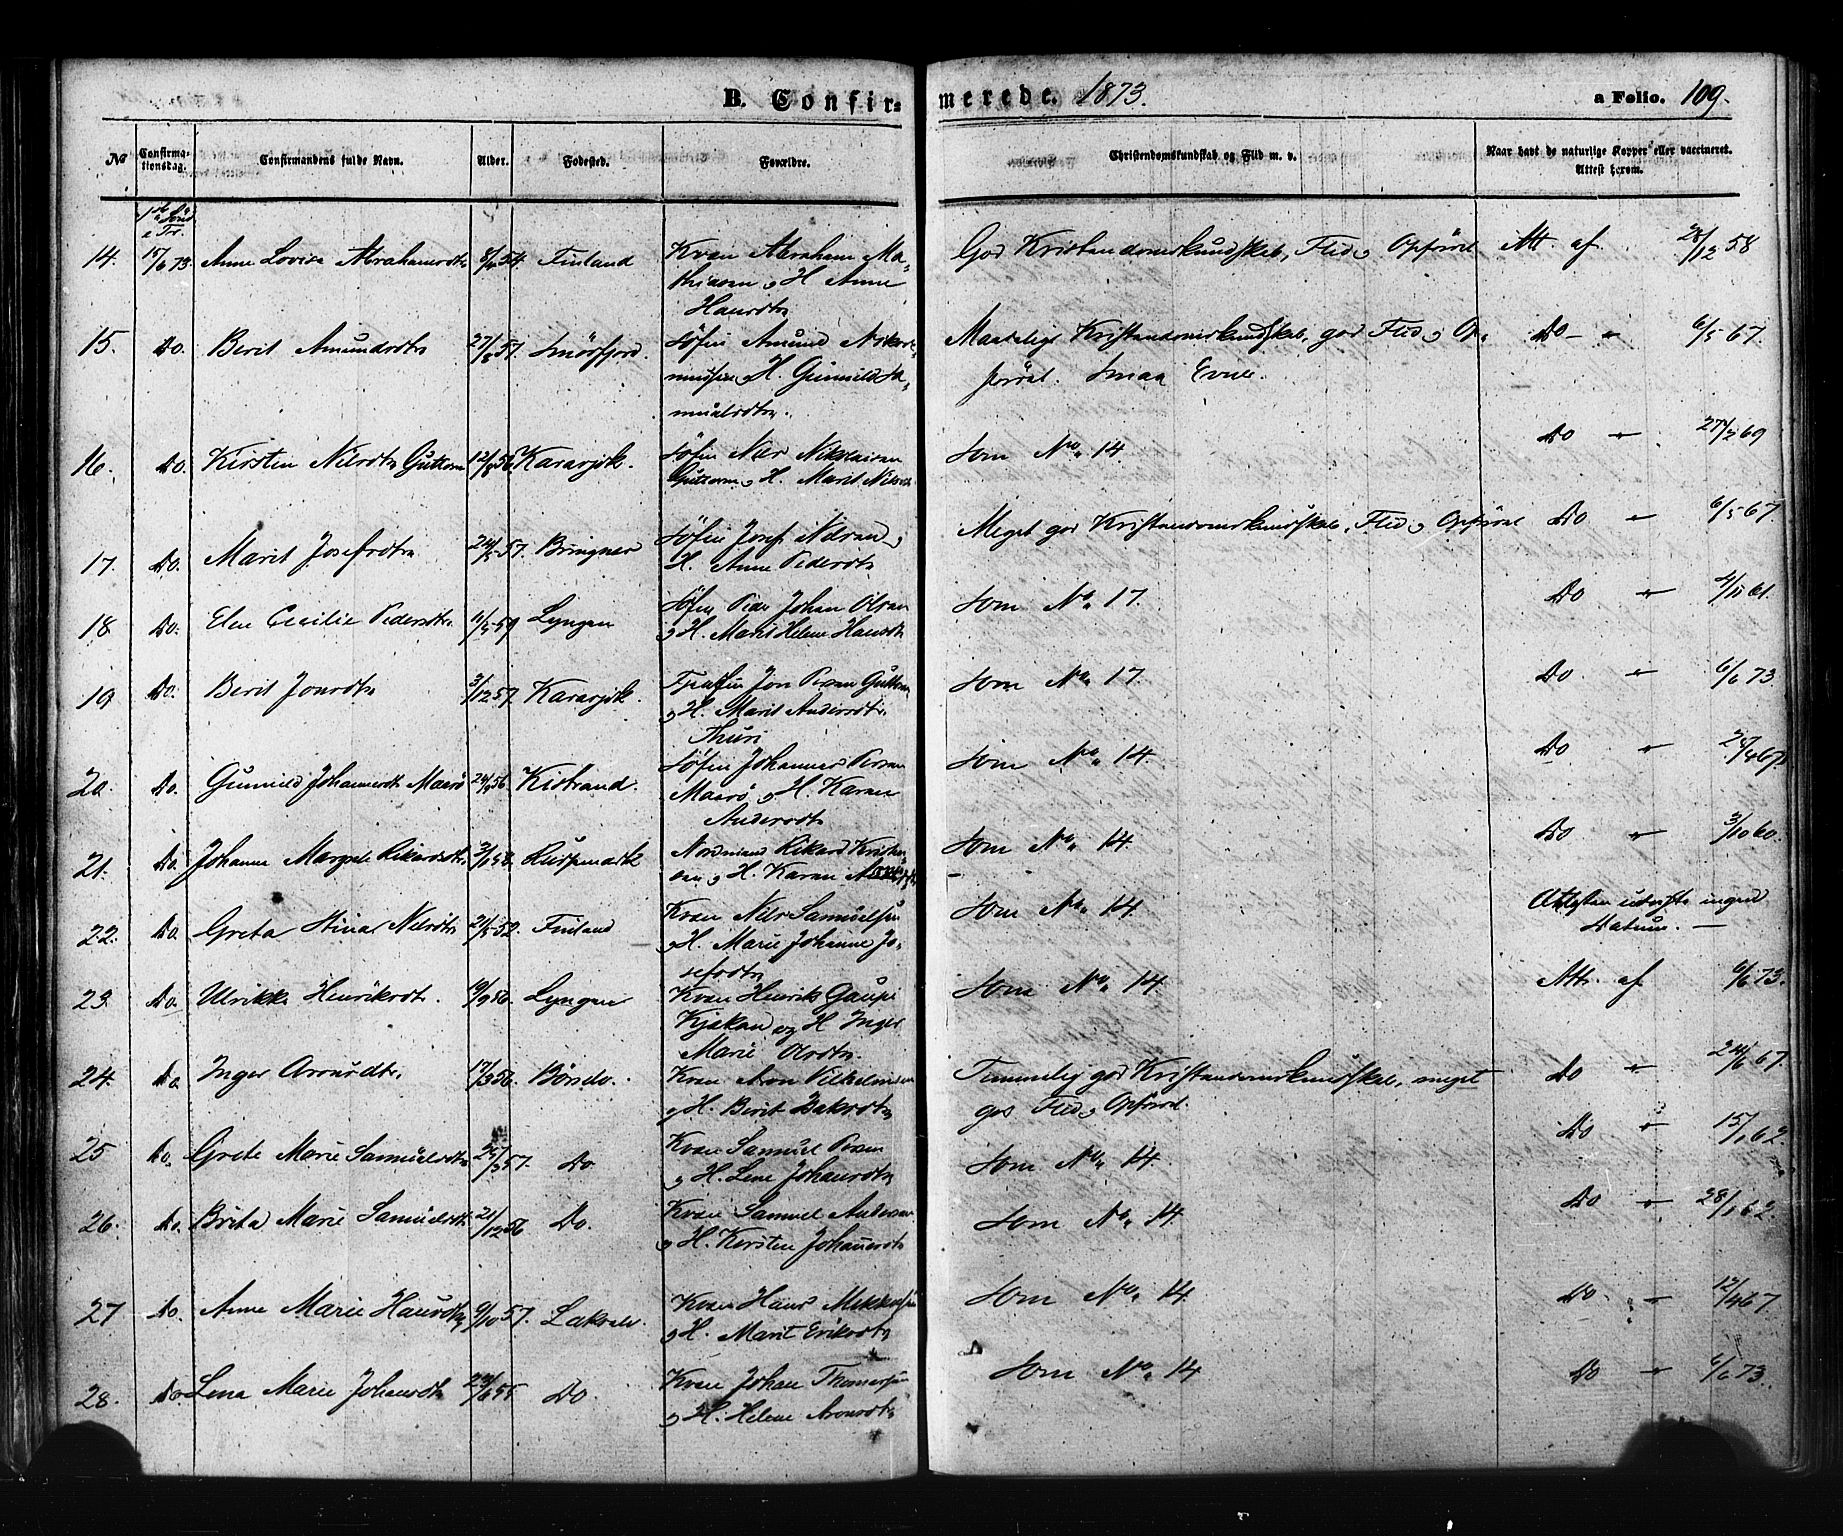 B. Confir=
merede. 1873.
a Folio. 109.
No
Confirma=
tionsdag.
Confirmandens fulde Navn.
Alder.
Fødested.
Forældre.
Christendomskundskab og Flid m. v.
Naar havt de naturlige Kopper eller vaccineret.
Attest herom.
14. 15/6 73. Anne Lovisa Abrahamsdtr Finland Kvæn Abraham Ma= God Kristendomskundskab, Flid og Opførsel Att. af 58
thiesen og H Anne
Hansdtr
15. Do. Berit Amundsdtr 57. Smørfjord. Søfin Amund Maadelig Kristendomskundskab, god Flid og Op= Do " 6/5 67.
H. Gunnild Sa= førsel. Smaa Evner.
muelsdtr.
16. Do. Kirsten Nilsdtr Guttorm 12/8 56 Karasjok. Søfin Nils Nikolaisen Som No. 14. Do " 69
Guttorm og H. Marit Nilsdtr
17. Do. Marit Josefsdtr 57. Søfin Josef Nilsen og Meget god Kristendomskundskab, Flid og Opførsel Do " 6/5 67.
H. Anne Pedersdtr
18 Do. Elen Cecilie Pedersdtr. Lyngen Søfin Peder Johan Olsen Som No. 17. Do " 61.
og H. Marit Helene Hansdtr
19 Do. Berit Jonsdtr 3/12 57. Karasjok. Fjeldfin Jon Persen Guttorm Som No. 17 Do " 6/6 73
og H. Marit Andersdtr.
Thuri
20. Do. Gunnild Johannesdtr Maasø 56. Kistrand. Søfin Johannes Persen Som No. 14. Do " 67.
Maasø og H. Karen
Andersdtr
21. Do. Johanne Margrete Rikardsdtr. Nordmand Rikard Kristen= Som No. 14. Do " 3/10 60.
sen og H. Karen
22. Do. Greta Stina Nilsdtr 52. Finland Kvæn Nils Samuelsen Som No. 14. Attesten udviste ingen
og H. Marie Johanne Jo= Datum.
sefsdtr
23. Do. Ulrikke Henriksdtr. 56. Lyngen Kvæn Henrik Gaupi Som No. 14. Att. af 6/6 73.
og H Inger
Marie Olsdtr.
24. Do. Inger Aronsdtr. 17/3 56. Børselv. Kvæn Aron Vilhelmsen Temmelig god Kristendomskundskab, meget Do " 24/6 67.
og H. Berit Isaksdtr god Flid og Opførsel.
25 Do. Grete Marie Samuelsdtr 57. Do Kvæn Samuel Persen Som No. 14. Do " 62.
og H. Lene Johansdtr
26. Do. Brita Marie Samuelsdtr 21/12 56 Do. Kvæn Samuel Andersen Som No. 14. Do " 62.
og H. Kirsten Johansdtr
27 Do. Anne Marie Hansdtr 9/10 57. Lakselv. Kvæn Hans Mikkelsen Som No. 14 Do. " 12/4 67.
og H. Marit Eriksdtr
28. Do Lena Marie Johansdtr 55 Do. Kvæn Johan Thomassen Som No. 14 Do " 6/6 73.
og H. Helene Aronsdtr